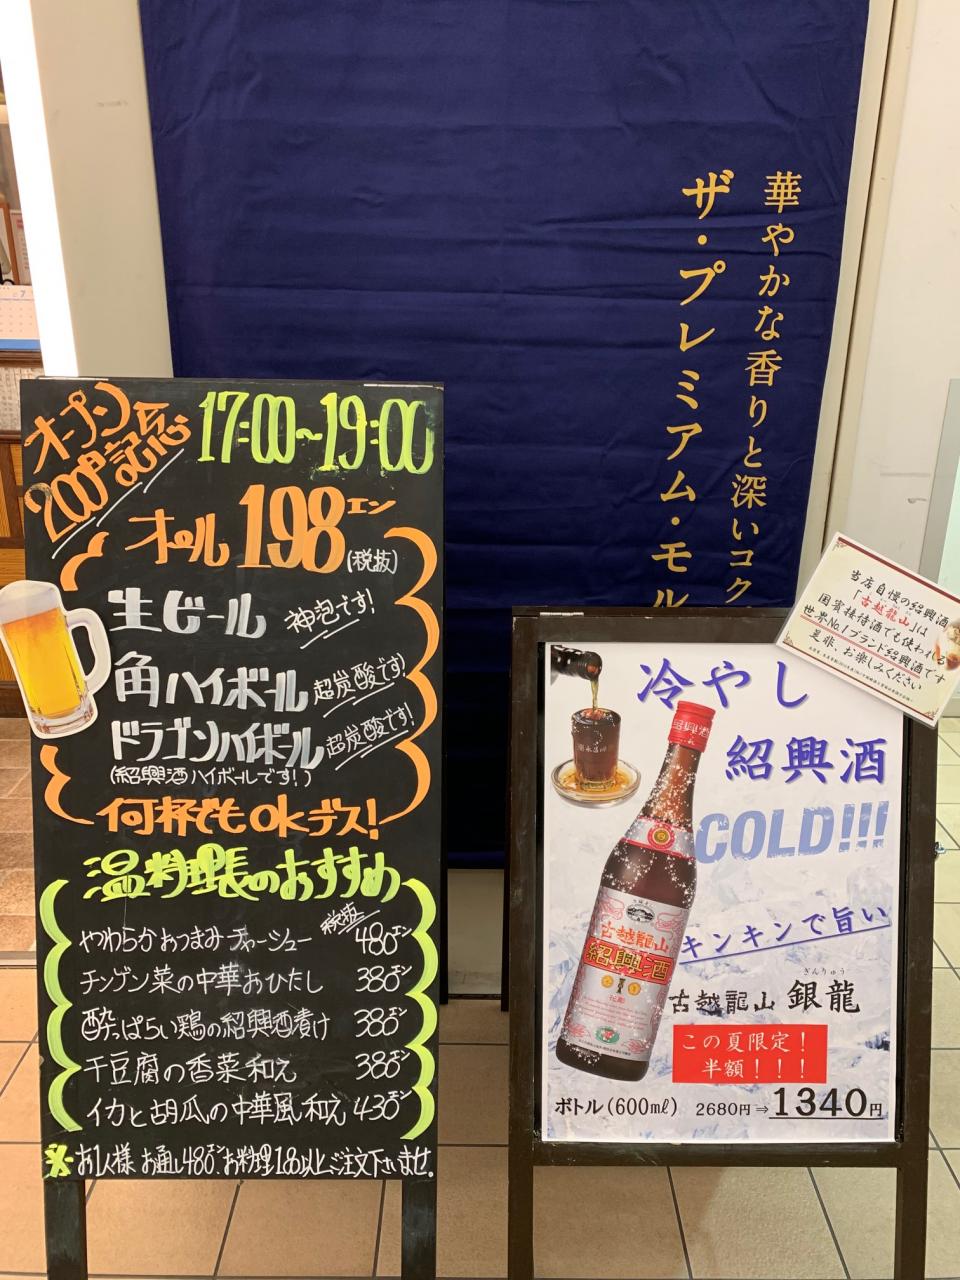 華やかな香りと深いコク
ザ・プレミアム・モル
オープン
200日記念
17:00~19:00
オール198エン
(税抜)
生ビール 神泡です!
角ハイボール 超炭酸です!
ドラゴンハイボール 超炭酸です!
(紹興酒ハイボールです!)
何杯でもokデス!
温料理長のおすすめ
税抜
やわらかおつまみチャーシュー 480エン
チンゲン菜の中華おひたし 380エン
酔っぱらい鶏の紹興酒漬け 380エン
干豆腐の香菜和え 380エン
イカと胡瓜の中華風和え 430エン
※お1人様 お通し480エン、お料理1品以上ご注文下さいませ。
当店自慢の紹興酒
「古越龍山」は
国賓接待酒でも使われる
世界No.1ブランド紹興酒です
是非、お楽しみください
冷やし
紹興酒
COLD!!!
紹興酒
古越龍山
紹興酒
キンキンで旨い
ぎんりゅう
古越龍山 銀龍
この夏限定!
半額!!!
ボトル(600mℓ) 2680円⇒1340円